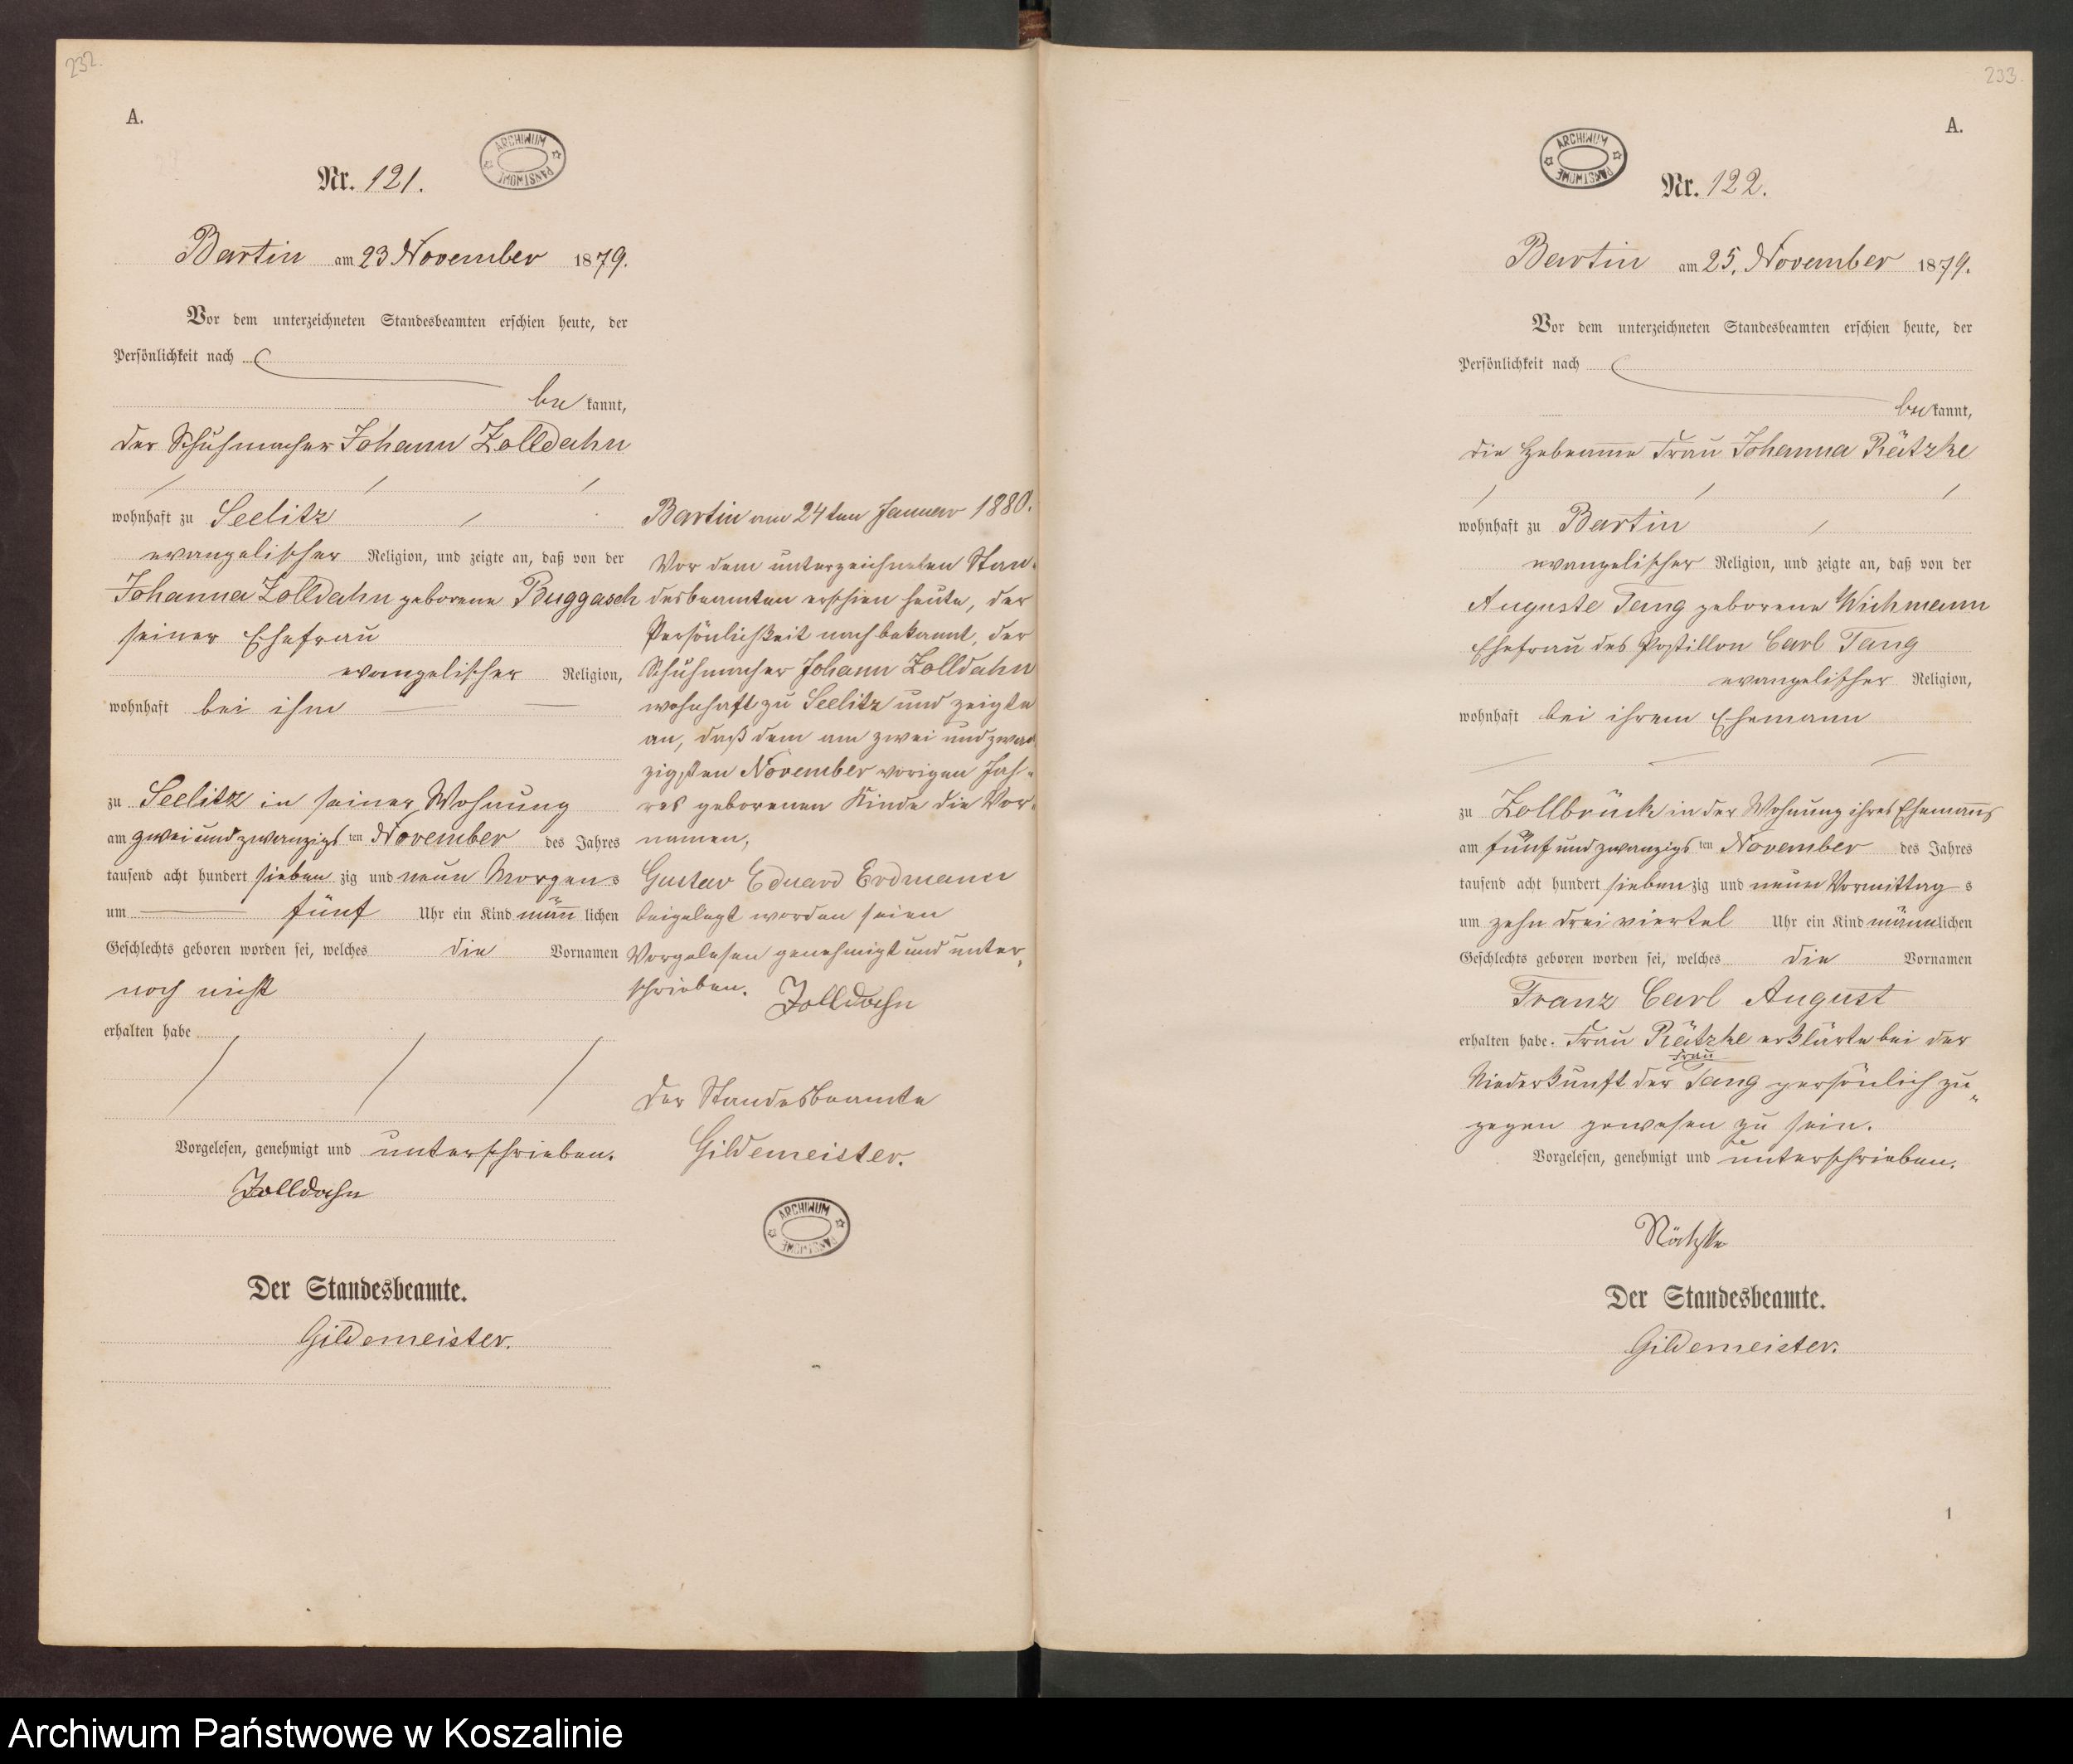 232.
A.
ARCHIWUM PAŃSTWOWE
Nr. 121.
Bartin am 23 November 1879.
Vor dem unterzeichneten Standesbeamten erschien heute, der
Persönlichkeit nach
bekannt,
der Schuhmacher Johann Zolldahn
wohnhaft zu Seelitz
evangelischer Religion, und zeigte an, daß von der
Johanna Zolldahn geborene Buggasch
seiner Ehefrau
evangelischer Religion,
wohnhaft bei ihm
zu Seelitz in seiner Wohnung
am zwei und zwanzigsten November des Jahres
tausend acht hundert siebenzig und neun Morgens
um fünf Uhr ein Kind männlichen
Geschlechts geboren worden sei, welches die Vornamen
noch nicht
erhalten habe
Vorgelesen, genehmigt und unterschrieben.
Zolldahn
Der Standesbeamte.
Gildemeister.
Bartin am 24ten Januar 1880.
Vor dem unterzeichneten Stan-
desbeamten erschien heute, der
Persönlichkeit nach bekannt, der
Schuhmacher Johann Zolldahn
wohnhaft zu Seelitz und zeigte
an, daß dem am zwei und zwan
zigsten November vorigen Jah-
res geborenen Kinde die Vor-
namen,
Gustav Eduard Erdmann
beigelegt worden seien
Vorgelesen genehmigt und unter-
schrieben. Zolldahn
Der Standesbeamte
Gildemeister.
ARCHIWUM PAŃSTWOWE
233.
A.
ARCHIWUM PAŃSTWOWE
Nr. 122.
Bartin am 25. November 1879.
Vor dem unterzeichneten Standesbeamten erschien heute, der
Persönlichkeit nach
bekannt,
die Hebeamme Frau Johanna Rätzke
wohnhaft zu Bartin
evangelischer Religion, und zeigte an, daß von der
Auguste Tang geborene Wichmann
Ehefrau des Postillon Carl Tang
evangelischer Religion,
wohnhaft bei ihrem Ehemann
zu Zollbrück in der Wohnung ihres Ehemanns
am fünf und zwanzigsten November des Jahres
tausend acht hundert siebenzig und neun Vormittags
um zehn drei viertel Uhr ein Kind männlichen
Geschlechts geboren worden sei, welches die Vornamen
Franz Carl August
erhalten habe. Frau Rätzke erklärte bei der
Niederkunft der Frau Tang persönlich zu-
gegen gewesen zu sein.
Vorgelesen, genehmigt und unterschrieben.
Rätzke
Der Standesbeamte.
Gildemeister.
1
Archiwum Państwowe w Koszalinie